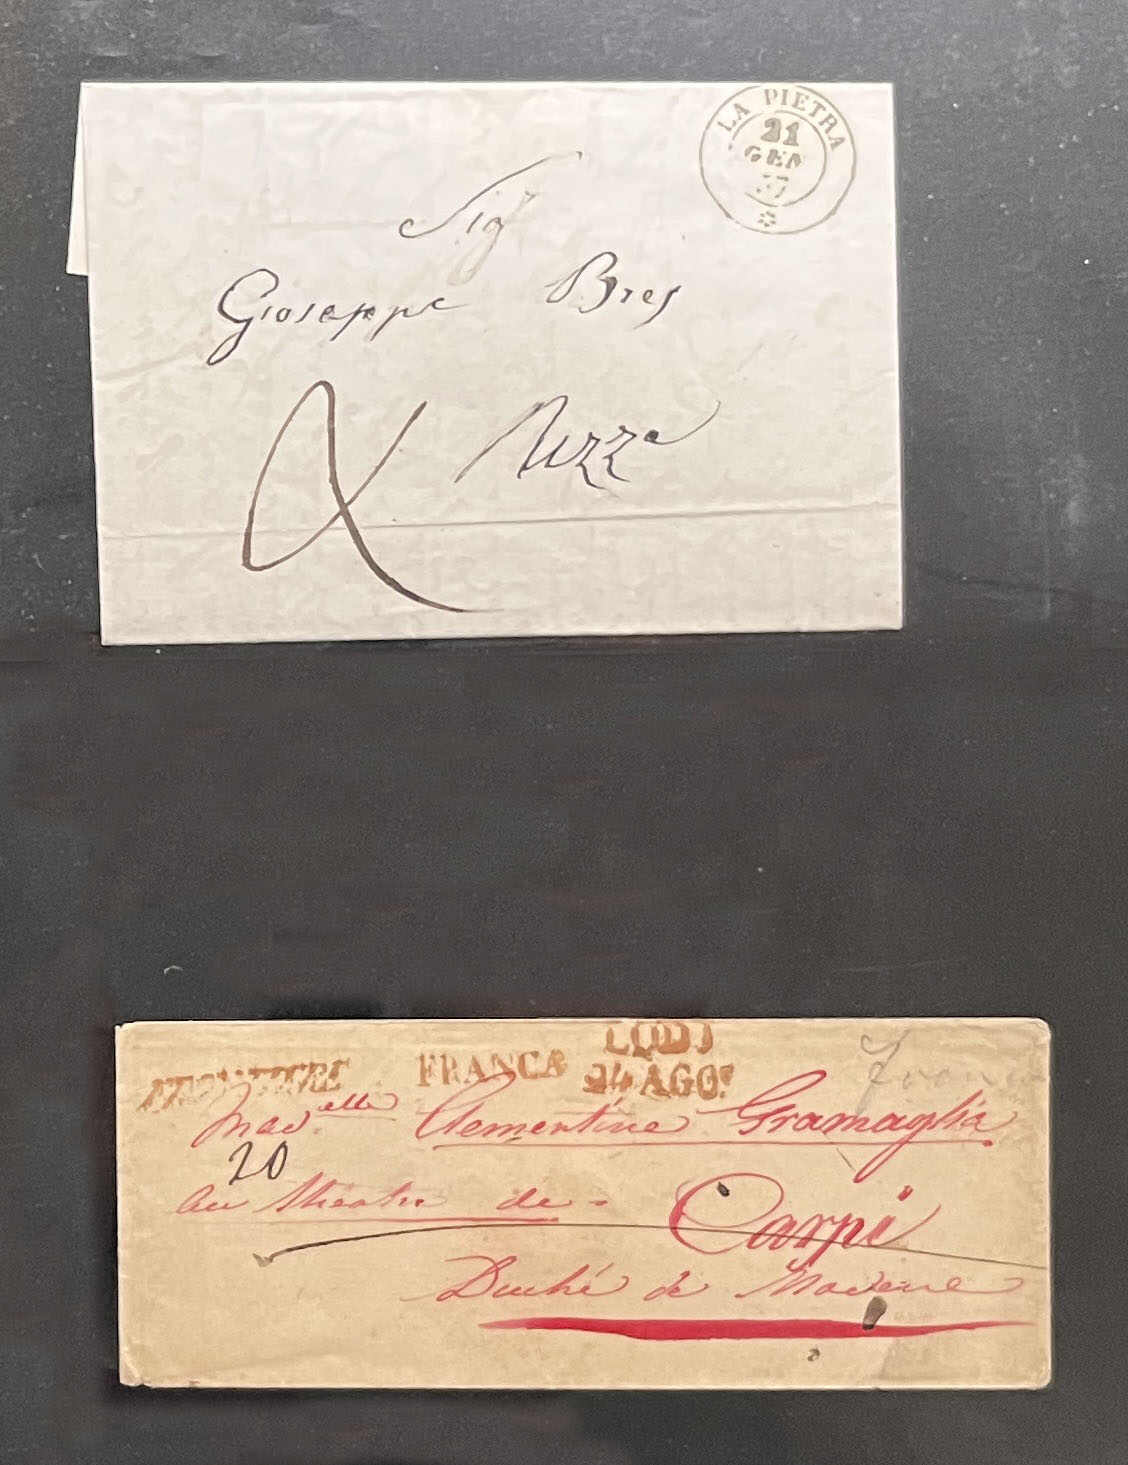 LA PIETRA
21
GEN
57
Sig.r
Giuseppe Bres
Nizza
LODI
FRANCA
24 AGO.
Mad.elle Clementine Gramaglia
20
au théatre de =
Carpi
Duché de Modene